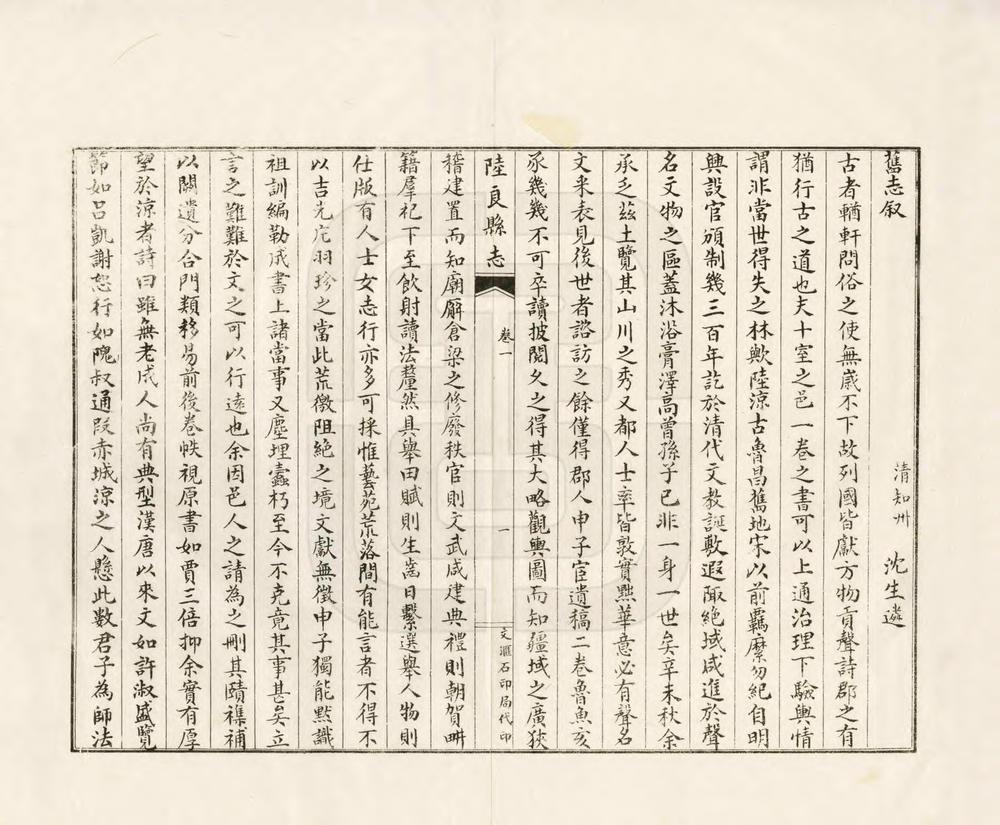 舊志叙
清知州　沈生遴
古者輶軒問俗之使無歲不下故列國皆獻方物貢聲詩郡之有
猶行古之道也夫十室之邑一卷之書可以上通治理下驗輿情
謂非當世得失之林歟陸涼古魯昌舊地宋以前羈縻勿紀自明
興設官頒制幾三百年訖於清代文教誕敷遐陬絶域咸進於聲
名文物之區蓋沐浴膏澤高曾孫子已非一身一世矣辛未秋余
承乏茲土覽其山川之秀又都人士率皆敦實黜華意必有聲名
文采表見後世者諮訪之餘僅得郡人申子宦遺稿二卷魯魚亥
豕幾幾不可卒讀披閱久之得其大略觀輿圖而知疆域之廣狹
陸良縣志
卷一
一
文滙石印局代印
稽建置而知廟廨倉梁之修廢秩官則文武咸建典禮則朝賀耕
籍羣祀下至飲射讀法釐然具舉田賦則生齒日繫選舉人物則
仕版有人士女志行亦多可採惟藝苑荒落間有能言者不得不
以吉光片羽珍之當此荒徼阻絶之境文獻無徵申子獨能默識
祖訓編勒成書上諸當事又塵埋蠹朽至今不克竟其事甚矣立
言之難難於文之可以行遠也余因邑人之請為之刪其賾襍補
以闕遺分合門類移易前後卷帙視原書如賈三倍抑余實有厚
望於涼者詩曰雖無老成人尚有典型漢唐以來文如許淑盛覽
節如呂凱謝恕行如隗叔通段赤城涼之人懸此數君子為師法